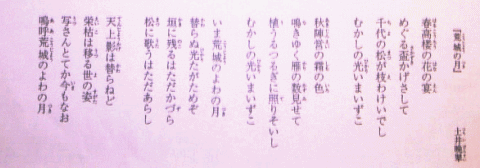 『荒城の月』
土井晩翠
春高楼の花の宴
めぐる盃かげさして
千代の松が枝わけいでし
むかしの光いまいずこ
秋陣営の霜の色
鳴きゆく雁の数見せて
植うるつるぎに照りそいし
むかしの光いまいずこ
いま荒城のよわの月
替らぬ光たがためぞ
垣に残るはただかづら
松に歌うはただあらし
天上影は替らねど
栄枯は移る世の姿
写さんとてか今もなお
嗚呼荒城のよわの月